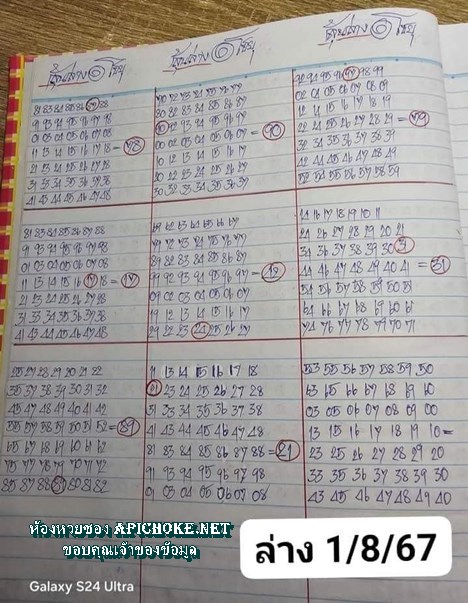 81 83 84 85 86 87 88
91 93 94 95 96 97 98
01 03 04 05 06 07 08
11 13 14 15 16 17 18 = 78
21 23 24 25 26 27 28
31 33 34 35 36 37 38
41 43 44 45 46 47 48
80 82 83 84 85 86 87
90 92 93 94 95 96 97
00 02 03 04 05 06 07 = 90
10 12 13 14 15 16 17
20 22 23 24 25 26 27
30 32 33 34 35 36 37
02 04 05 06 07 08 09
12 14 15 16 17 18 19
22 24 25 26 27 28 29 = 79
32 34 35 36 37 38 39
42 44 45 46 47 48 49
52 54 55 56 57 58 59
81 83 84 85 86 87 88
91 93 94 95 96 97 98
01 03 04 05 06 07 08
11 13 14 15 16 17 18 = 17
21 23 24 25 26 27 28
31 33 34 35 36 37 38
41 43 44 45 46 47 48
79 72 73 74 75 76 77
89 82 83 84 85 86 87
99 92 93 94 95 96 97 =
09 02 03 04 05 06 07
19 12 13 14 15 16 17
29 22 23 24 25 26 27
14 16 17 18 19 10 11
24 26 27 28 29 20 21
34 36 37 38 39 30 31
44 46 47 48 49 40 41 = 31
54 56 57 58 59 50 51
64 66 67 68 69 60 61
74 76 77 78 79 70 71
25 27 28 29 20 21 22
35 37 38 39 30 31 32
45 47 48 49 40 41 42
55 57 58 59 50 51 52 = 89
65 67 68 69 60 61 62
75 77 78 79 70 71 72
85 87 88 89 80 81 82
11 13 14 15 16 17 18
21 23 24 25 26 27 28
31 33 34 35 36 37 38
41 43 44 45 46 47 48
81 83 84 85 86 87 88 = 21
91 93 94 95 96 97 98
01 03 04 05 06 07 08
53 55 56 57 58 59 50
63 65 66 67 68 69 60
03 05 06 07 08 09 00
13 15 16 17 18 19 10 =
23 25 26 27 28 29 20
33 35 36 37 38 39 30
43 45 46 47 48 49 40
ห้องหวยซอง APICHOKE.NET
ขอบคุณเจ้าของข้อมูล
ล่าง 1/8/67
Galaxy S24 Ultra